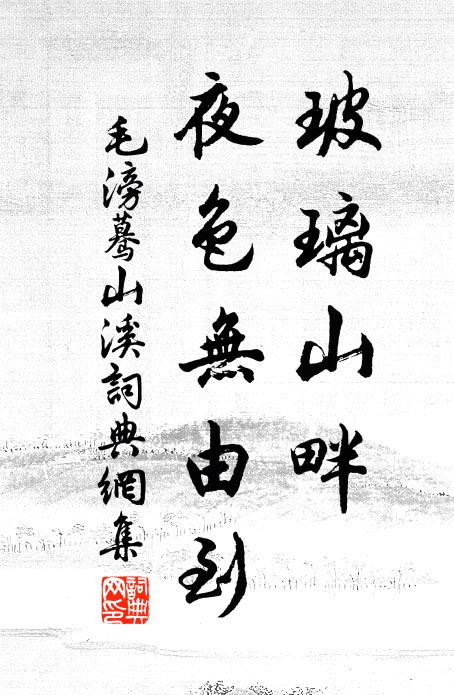 玻璃山畔
夜色無由到
毛滂驀山溪詞典網集
詞典网印